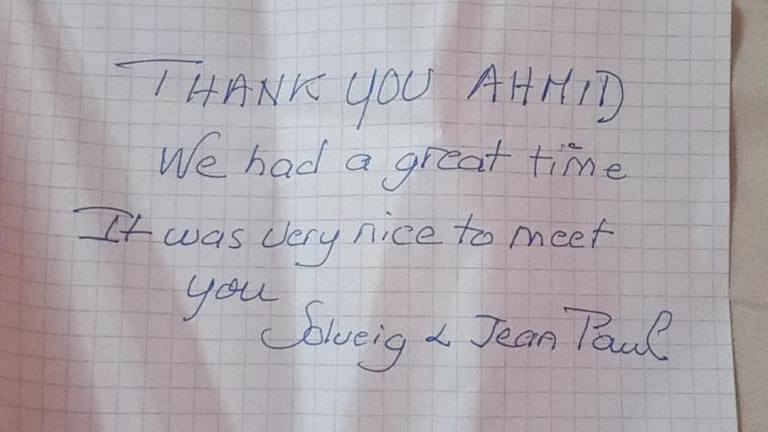 THANK YOU AHMID
We had a great time
It was very nice to meet
you
Solveig & Jean Paul